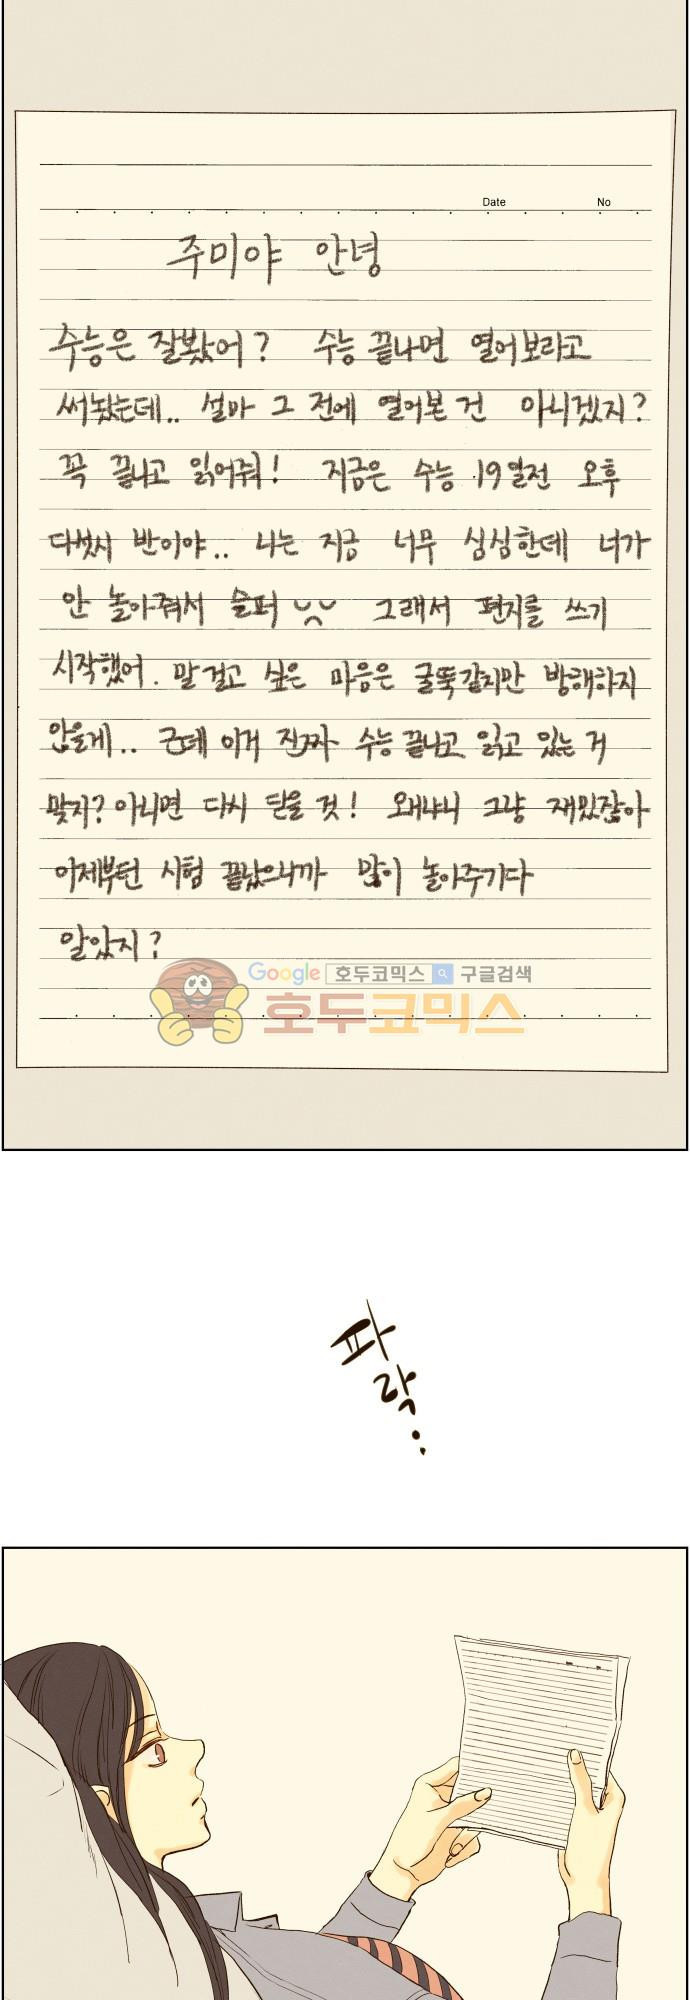 Date No
주미야 안녕
수능은 잘봤어? 수능 끝나면 열어보라고
써놨는데.. 설마 그 전에 열어본 건 아니겠지?
꼭 끝나고 읽어줘! 지금은 수능 19일전 오후
다섯시 반이야.. 나는 지금 너무 심심한데 너가
안 놀아줘서 슬퍼 그래서 편지를 쓰기
시작했어. 말 걸고 싶은 마음은 굴뚝같지만 방해하지
않을게.. 근데 이거 진짜 수능 끝나고 읽고 있는 거
맞지? 아니면 다시 닫을 것! 왜냐니 그냥 재밌잖아
이제부턴 시험 끝났으니까 많이 놀아주기다
알았지?
Google 호두코믹스 구글검색
호두코믹스
파락..